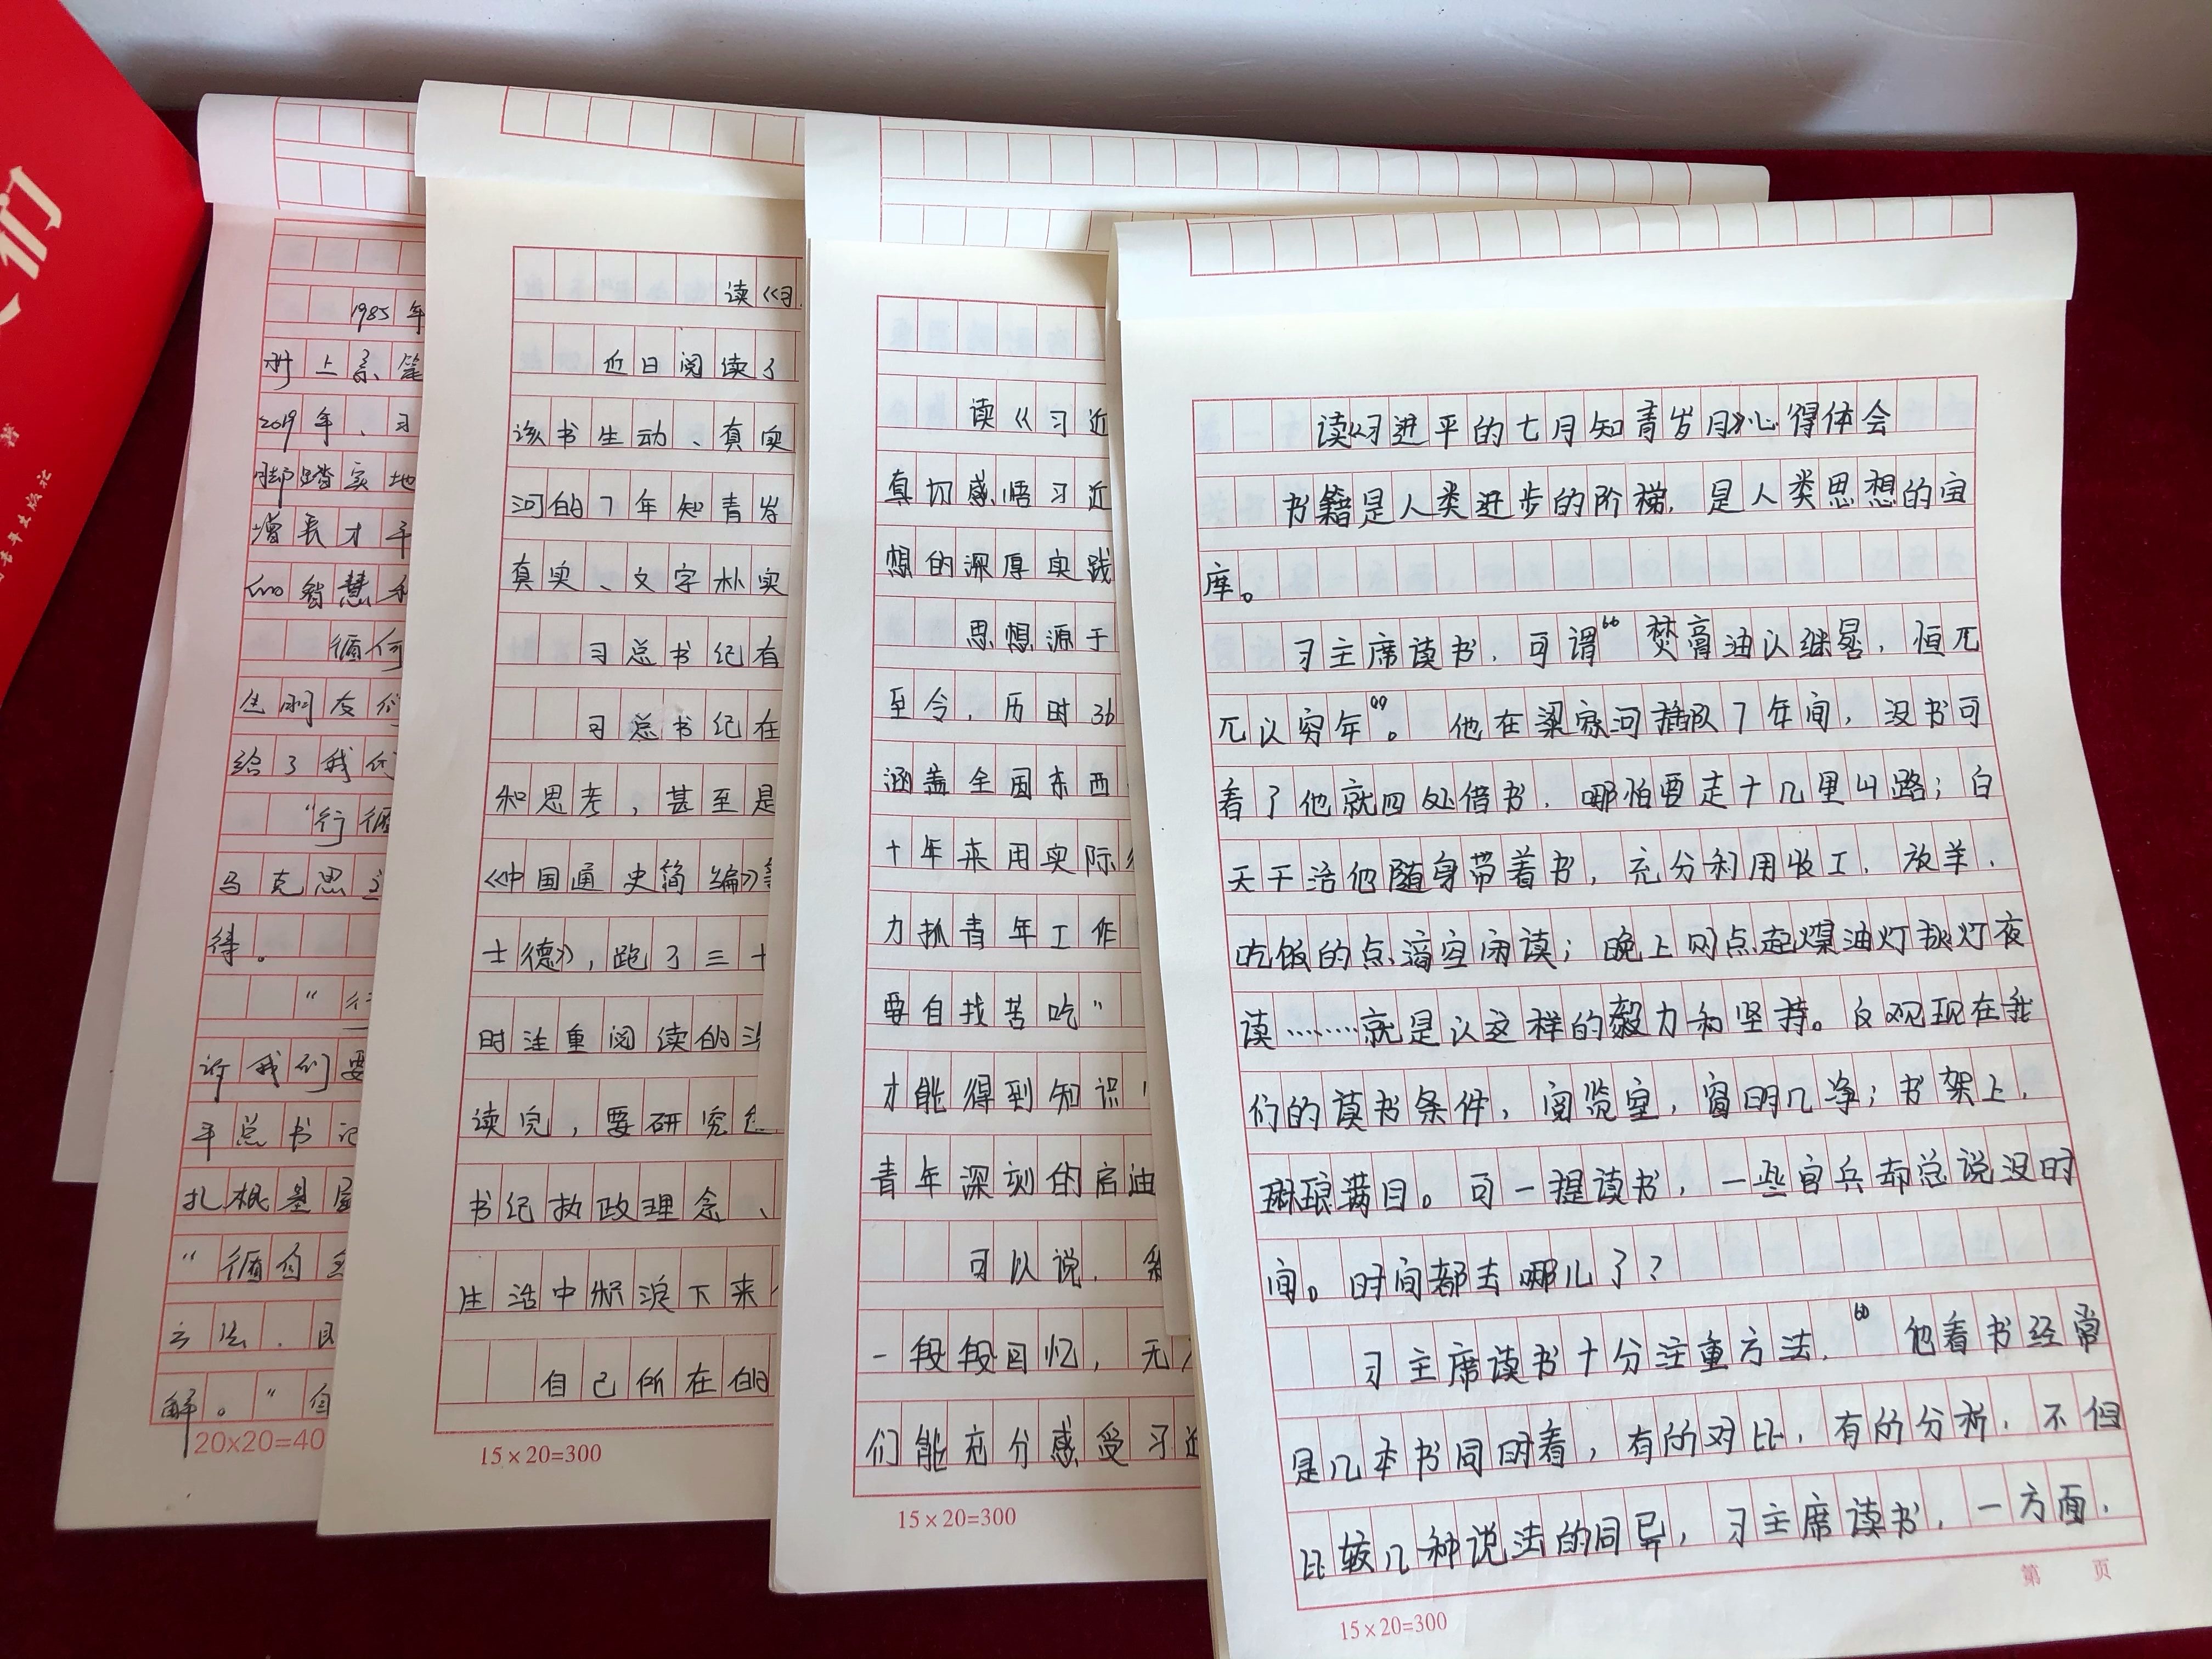 们
1985年
册上系
2019年、习
脚踏实地
增长才干
和智慧
循何
给了我们
"行循
马克思主
得。
诉我们要
平总书记
扎根基层
"循自
方法.
解。"自
20×20=40
读《习
近日阅读了
该书生动、真实
河的7年知青岁
真实、文字朴实
习总书记有
习总书记在
和思考，甚至是
《中国通史简编》等
士德》，跑了三十
时注重阅读的
读完，要研究
书记执政理念、
生活中积淀下来
自己所在的
15×20=300
读《习近
真切感悟习近
想的深厚实践
思想源于
至今，历时36
涵盖全国东西
十年来用实际
力抓青年工作
要自找苦吃"
才能得到知识
青年深刻的启迪
可以说，
一段段回忆，无
们能充分感受习近
15×20=300
读《习进平的七月知青岁月》心得体会
书籍是人类进步的阶梯，是人类思想的宝
库。
习主席读书，可谓“焚膏油以继晷，恒兀
兀以穷年”。他在梁家河插队7年间，没书可
看了他就四处借书，哪怕要走十几里山路；白
天干活他随身带着书，充分利用收工，放羊，
吃饭的点滴空闲读；晚上则点起煤油灯挑灯夜
读………就是以这样的毅力和坚持。反观现在我
们的读书条件，阅览室，窗明几净；书架上，
琳琅满目。可一提读书，一些官兵却总说没时
间。时间都去哪儿了？
习主席读书十分注重方法，“他看书经常
是几本书同时看，有的对比，有的分析，不但
比较几种说法的同异，习主席读书，一方面，
第 页
15×20=300